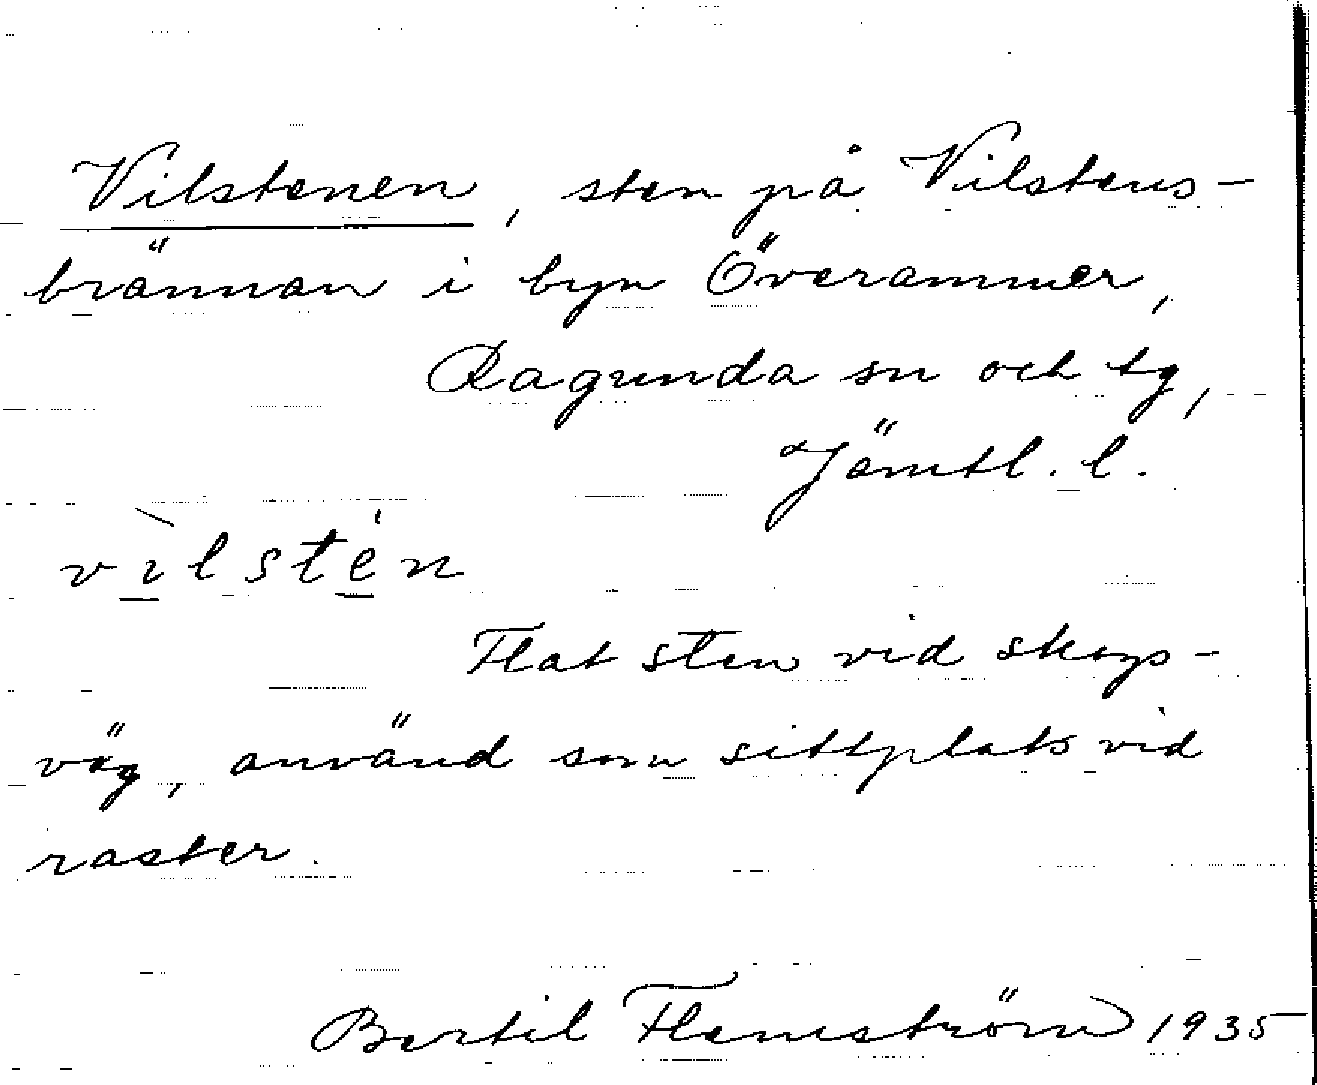 Vilstenen, sten på Vilstens-
brännan i byn Överammer,
Ragunda sn och tg,
Jämtl. l.
vı̀lstén
Flat sten vid skogs-
väg, använd som sittplats vid
raster.
Bertil Flemström 1935